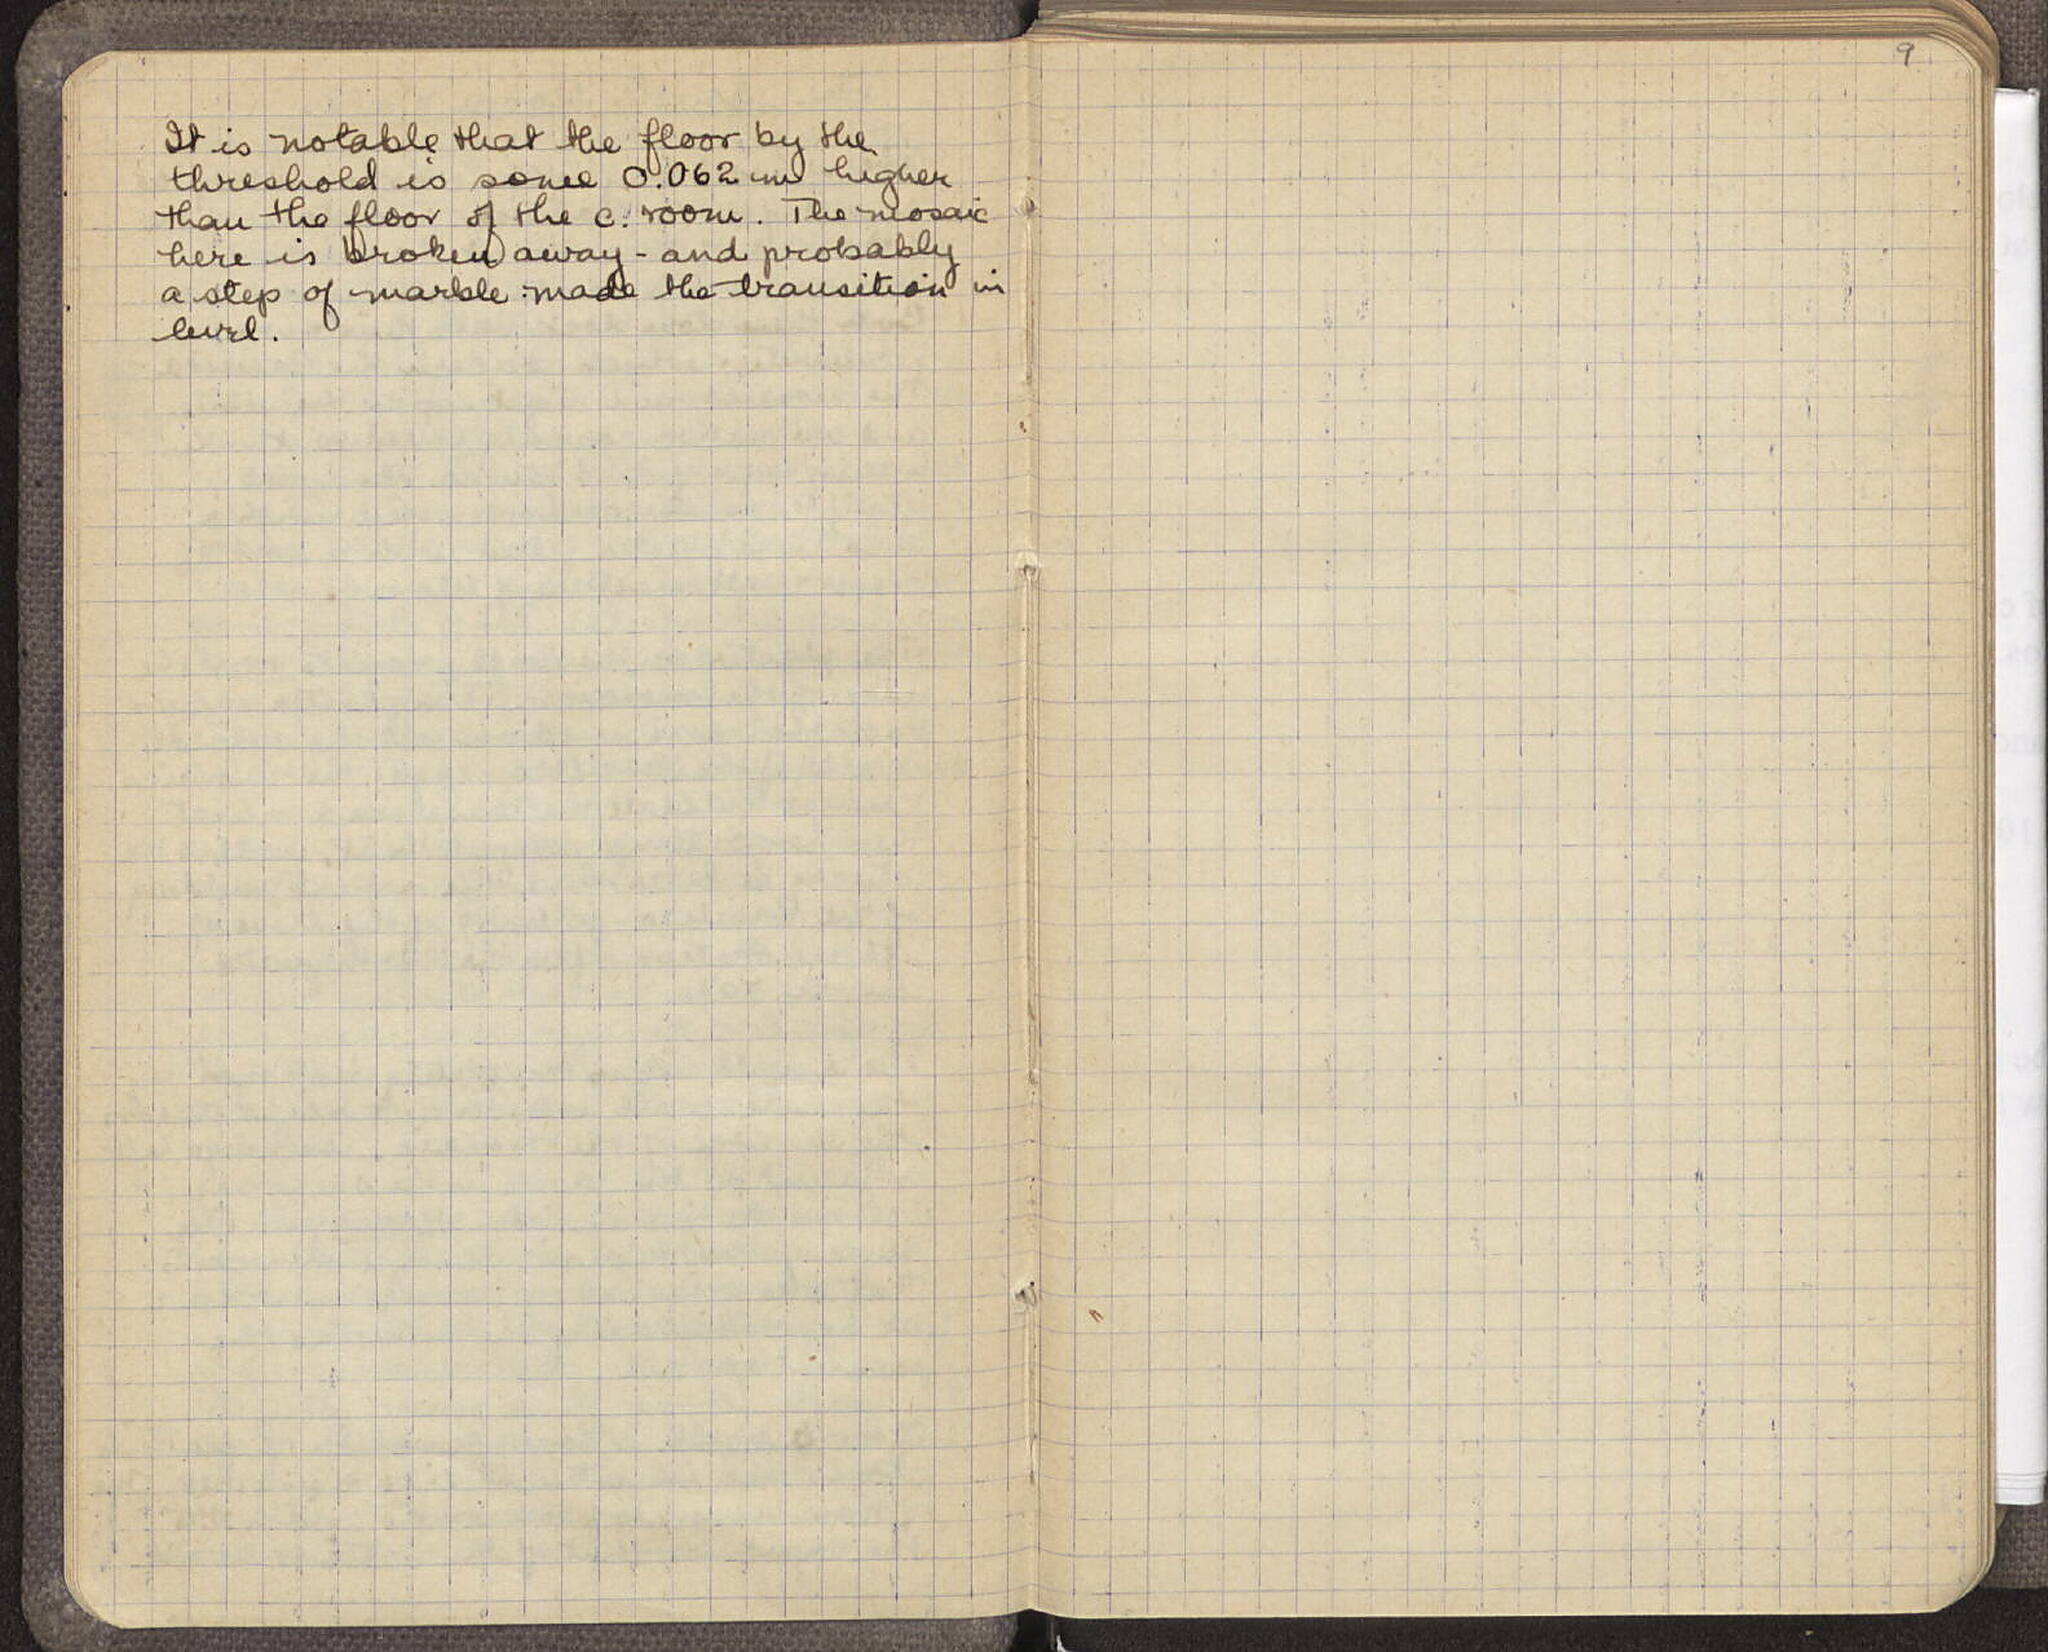 It is notable that the floor by the
threshold is some 0.062 m higher
than the floor of the c. room. The mosaic
here is broken away - and probably
a step of marble made the transition in
level.
9